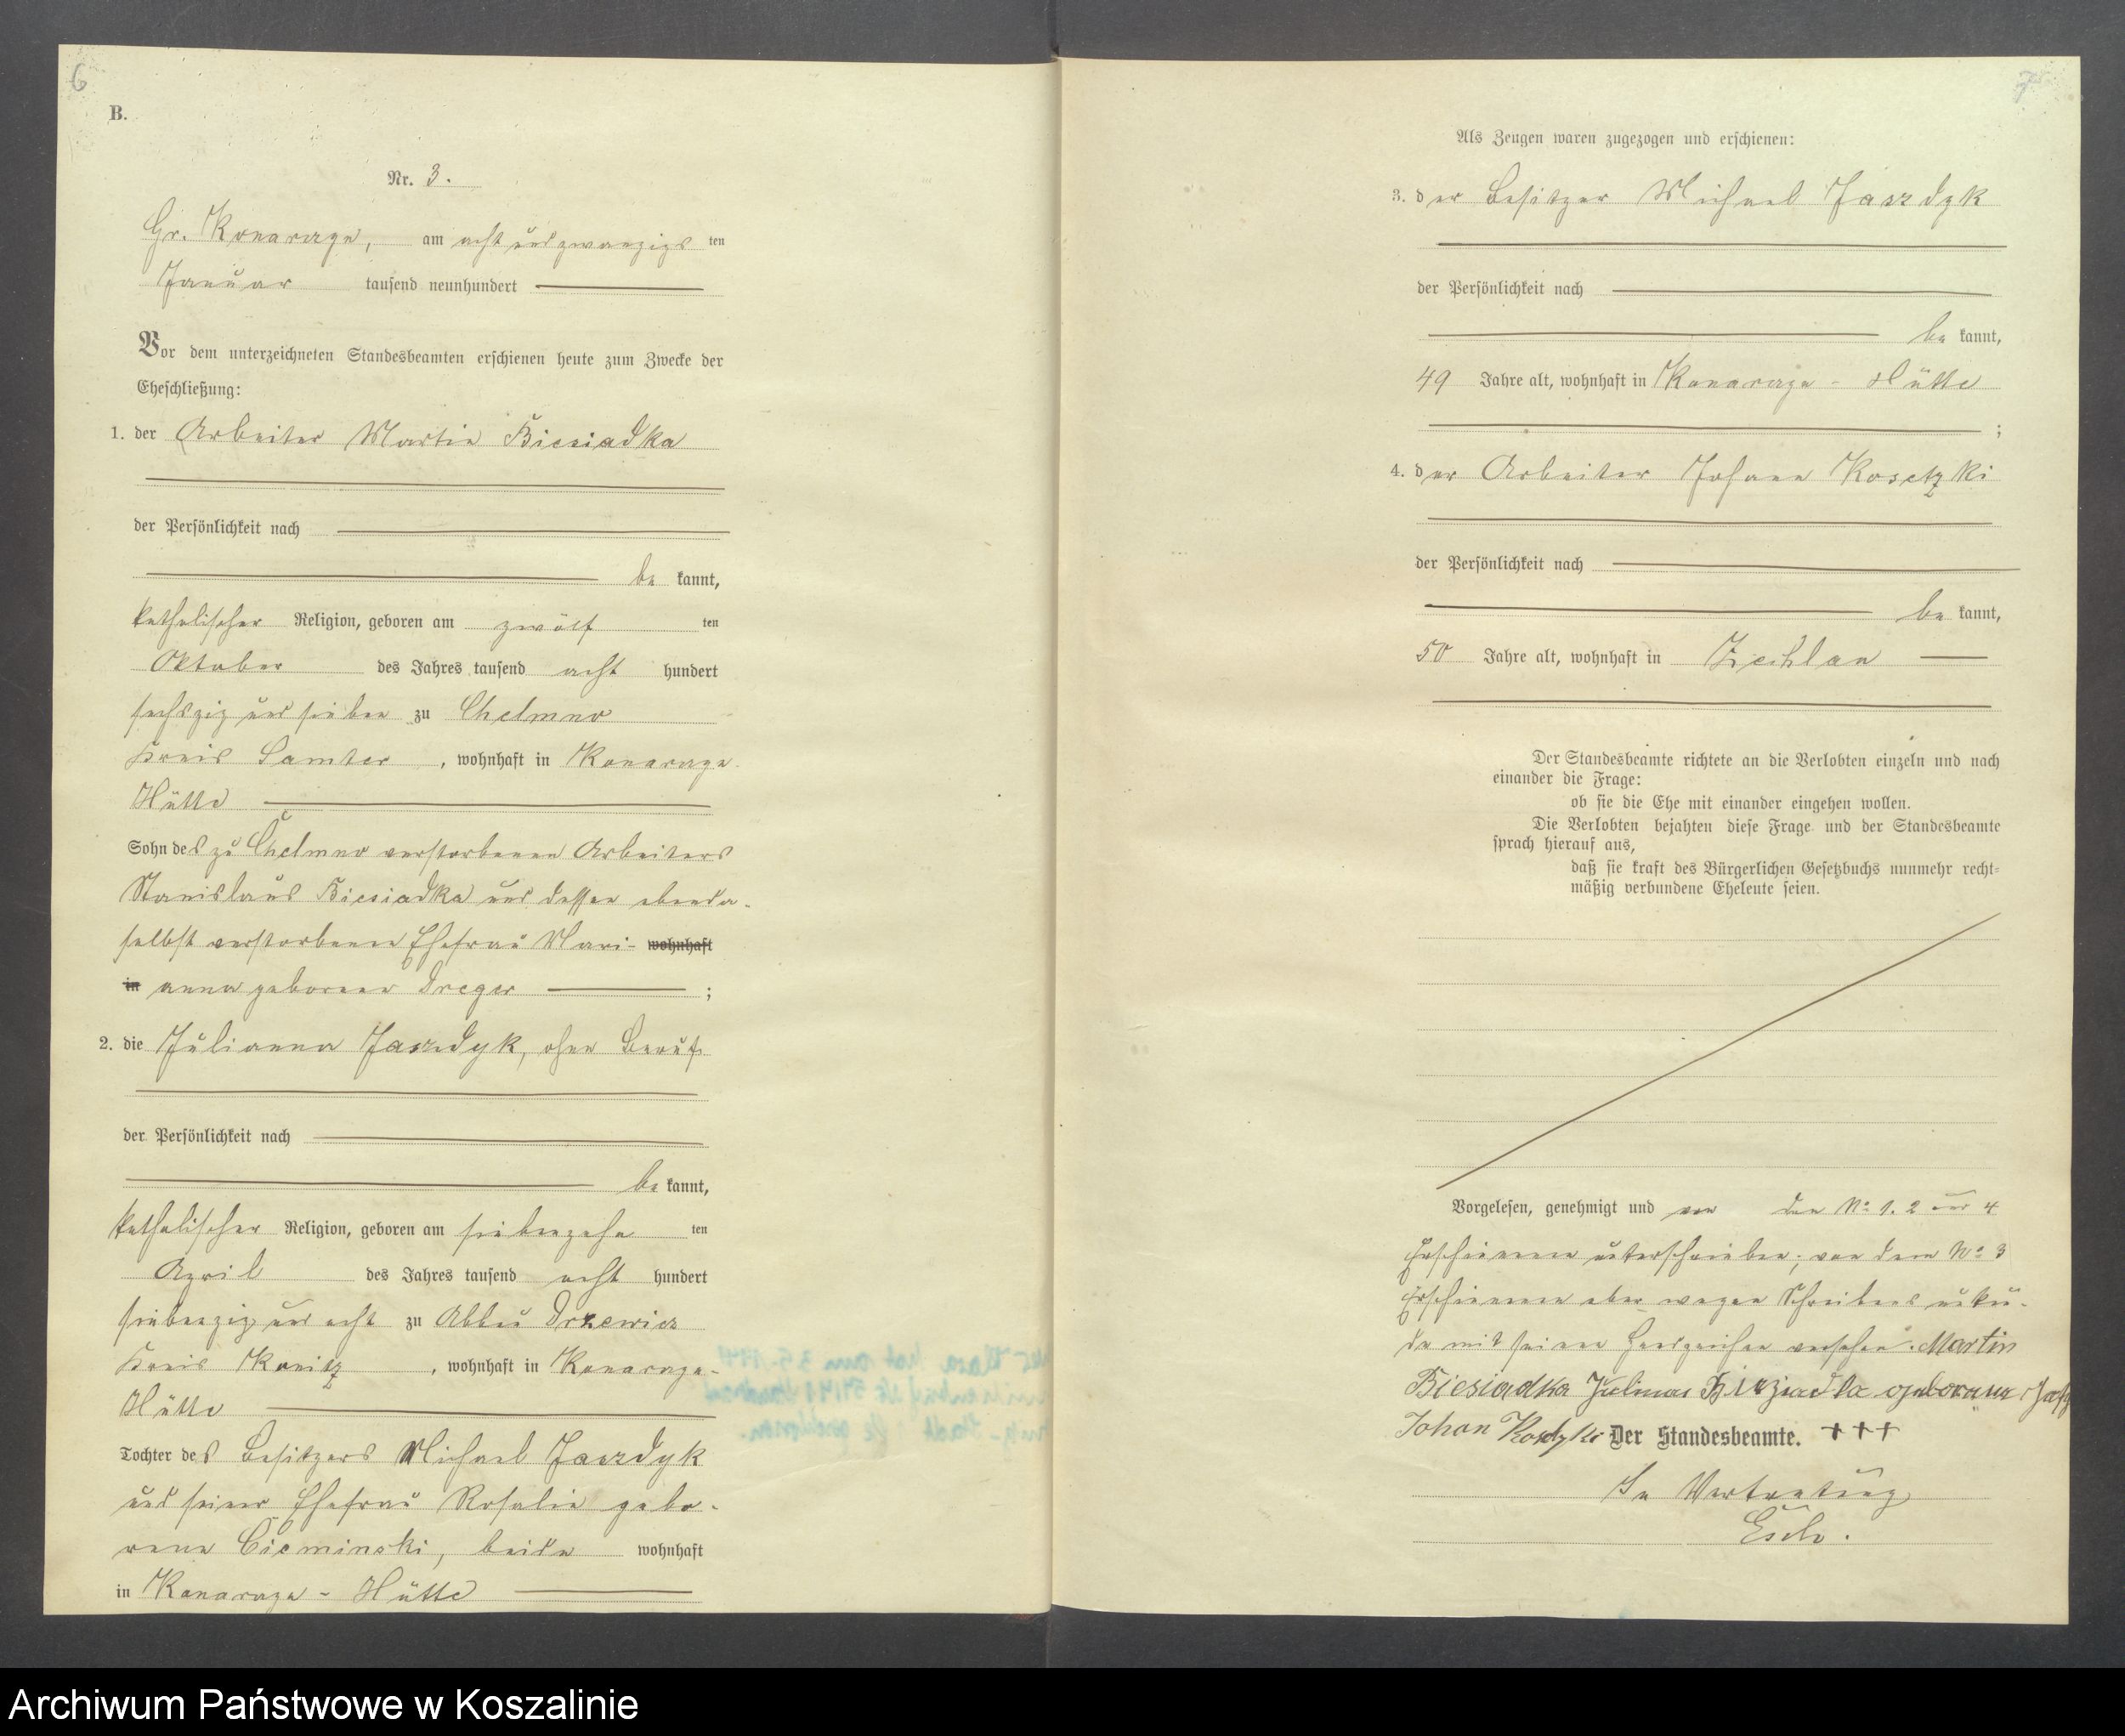 6
B.
Nr. 3.
Gr. Konarczyn, am acht und zwanzigs ten
Januar tausend neunhundert
Vor dem unterzeichneten Standesbeamten erschienen heute zum Zwecke der
Eheschließung:
1. der Arbeiter Martin Biesiadka
der Persönlichkeit nach
be kannt,
katholischer Religion, geboren am zwölf ten
Oktober des Jahres tausend acht hundert
sechszig und sieben zu Chelmno
Kreis Samter, wohnhaft in
Hütte
Sohn des zu Chelmno verstorbenen Arbeiters
Stanislaus Biesiadka und dessen ebenda-
selbst verstorbenen Ehefrau Mari- wohnhaft
in anna geborenen Dreger ;
2. die Julianna Jaszdyk, ohne Beruf
der Persönlichkeit nach
be kannt,
katholischer Religion, geboren am siebenzehn ten
April des Jahres tausend acht hundert
siebenzig und acht zu Abbau Drzewicz
Kreis Konitz, wohnhaft in
Hütte
Tochter des Besitzers Michael Jaszdyk
und seiner Ehefrau Rosalie gebo-
rene Cieminski, beide wohnhaft
in Hütte
7
Als Zeugen waren zugezogen und erschienen:
3. der Besitzer Michael Jaszdyk
der Persönlichkeit nach
be kannt,
49 Jahre alt, wohnhaft in Hütte
;
4. der Arbeiter Johann Kosetzki
der Persönlichkeit nach
be kannt,
50 Jahre alt, wohnhaft in Zechlau
Der Standesbeamte richtete an die Verlobten einzeln und nach
einander die Frage:
ob sie die Ehe mit einander eingehen wollen.
Die Verlobten bejahten diese Frage und der Standesbeamte
sprach hierauf aus,
daß sie kraft des Bürgerlichen Gesetzbuchs nunmehr recht=
mäßig verbundene Eheleute seien.
Vorgelesen, genehmigt und von den No 1. 2 und 4
Erschienenen unterschrieben; von dem No 3
Erschienenen aber wegen Schreibens unkun-
de mit seinem Handzeichen versehen. Martin
Biesiadka geborene
Johan Der Standesbeamte. +++
In Vertretung
Archiwum Państwowe w Koszalinie